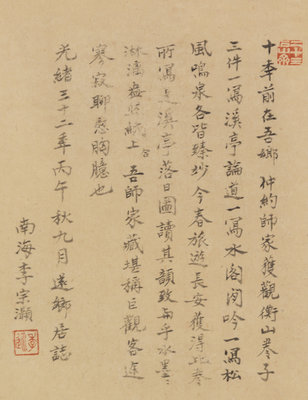 十年前在吾鄉仲約師家獲觀衡山卷子
三件一寫溪亭論道一寫水閣閒吟一寫松
風鳴泉各皆臻妙今春旅遊長安獲得此卷
所寫是溪亭落日圖讀其韻致與乎水墨
淋漓無不上合吾師家藏堪稱巨觀客途
寥寂聊慰胸臆也
光緒三十二年丙午秋九月還鄉居誌
南海李宗灝